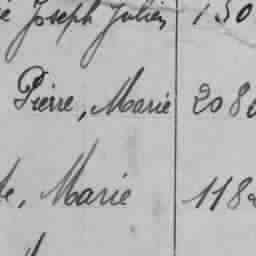 Joseph Julien 130
Pierre, Marie 208
, Marie 118